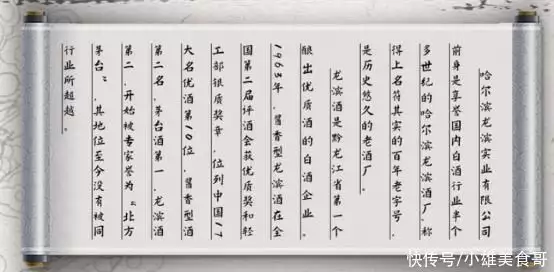 哈尔滨龙滨实业有限公司
前身是享誉国内白酒行业半个
多世纪的哈尔滨龙滨酒厂,称
得上名符其实的百年老字号,
是历史悠久的老酒厂。
龙滨酒是黔龙江省第一个
酿出优质酒的白酒企业。
1963年,酱香型龙滨酒在全
国第二届评酒会获优质奖和轻
工部银质奖章,位列中国17
大名优酒第10位,酱香型酒
第二名,茅台酒第一,龙滨酒
第二,开始被专家誉为“北方
茅台”,其地位至今没有被同
行业所超越。
快传号/小雄美食哥